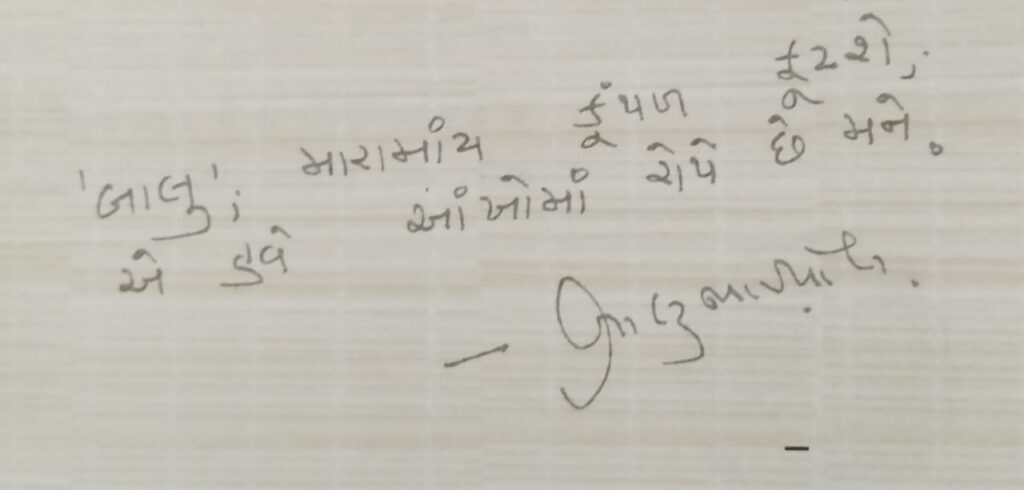 'બાલુ'; મારામાંય કૂંપળ ફૂટશે;
એ હવે આંખોમાં રોપે છે મને.